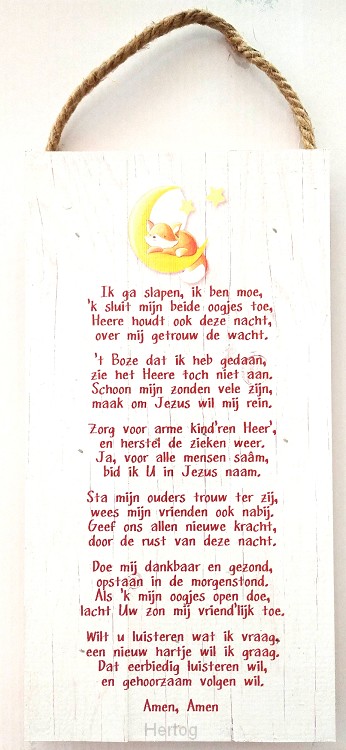 Ik ga slapen, ik ben moe,
'k sluit mijn beide oogjes toe,
Heere houdt ook deze nacht,
over mij getrouw de wacht.
't Boze dat ik heb gedaan,
zie het Heere toch niet aan.
Schoon mijn zonden vele zijn,
maak om Jezus wil mij rein.
Zorg voor arme kind'ren Heer',
en herstel de zieken weer.
Ja, voor alle mensen saâm,
bid ik U in Jezus naam.
Sta mijn ouders trouw ter zij,
wees mijn vrienden ook nabij.
Geef ons allen nieuwe kracht,
door de rust van deze nacht.
Doe mij dankbaar en gezond,
opstaan in de morgenstond.
Als 'k mijn oogjes open doe,
lacht Uw zon mij vriend'lijk toe.
Wilt u luisteren wat ik vraag,
een nieuw hartje wil ik graag.
Dat eerbiedig luisteren wil,
en gehoorzaam volgen wil.
Amen, Amen
Hertog